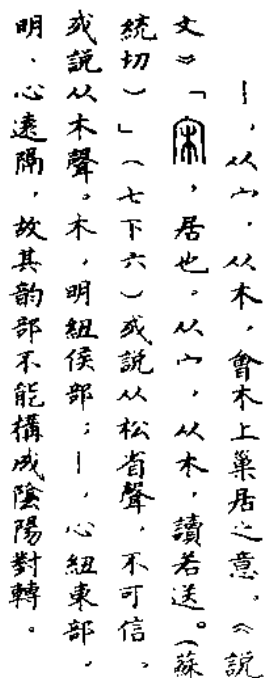 ｜，从宀，从木，會木上巢居之意。《說
文》「宋，居也。从宀，从木，讀若送。（蘇
統切）」（七下六）或說从松省聲，不可信。
或說从木聲。木，明紐侯部；｜，心紐東部，
明、心遠隔，故其韵部不能構成陰陽對轉。